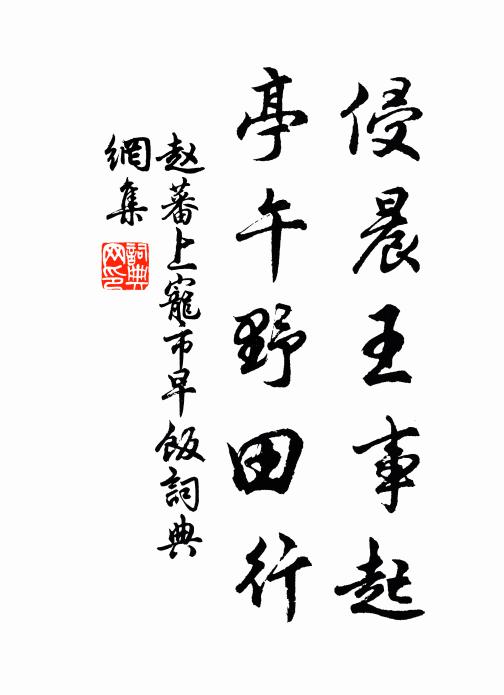 侵晨王事起
亭午野田行
赵蕃上寵市早飯詞典
網集
詞典
网印